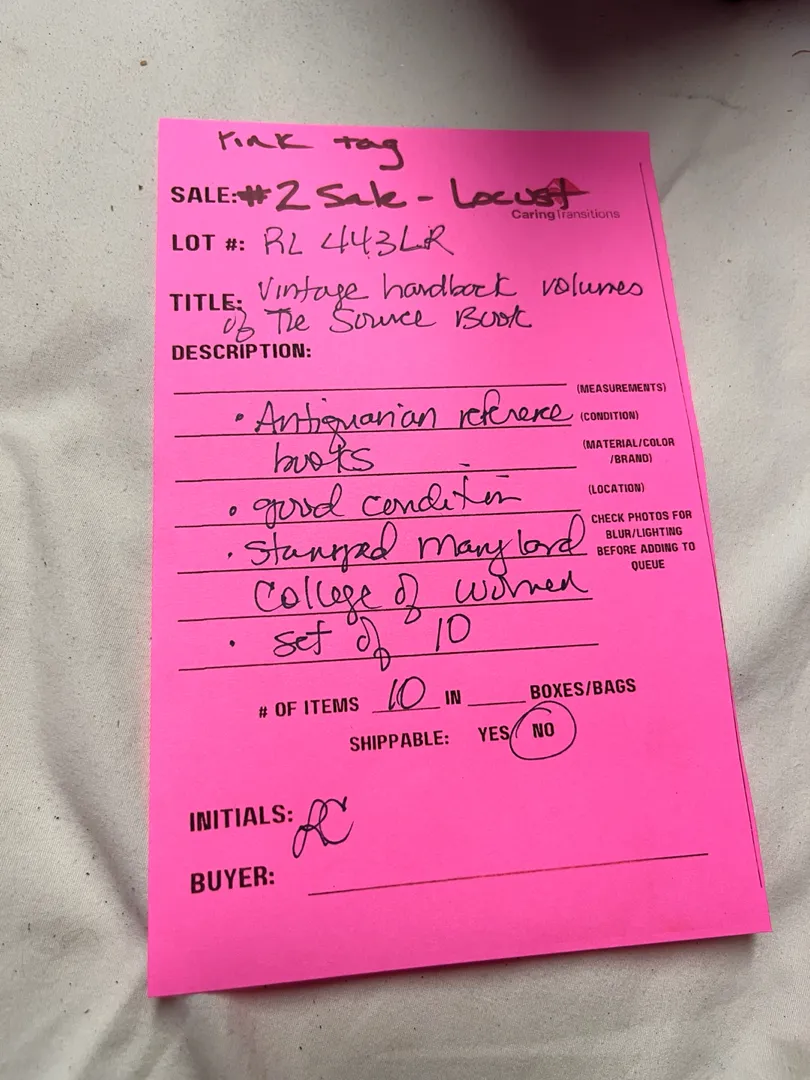 Pink tag
SALE: #2 Sale - Locust
CaringTransitions
LOT #: RL 443LR
TITLE: Vintage hardback volumes
of The Source Book
DESCRIPTION:
(MEASUREMENTS)
• Antiquarian reference (CONDITION)
books (MATERIAL/COLOR
/BRAND)
• good condition (LOCATION)
• stamped Maryland CHECK PHOTOS FOR
BLUR/LIGHTING
BEFORE ADDING TO
QUEUE
College of women
• set of 10
# OF ITEMS 10 IN ____ BOXES/BAGS
SHIPPABLE: YES NO
INITIALS: RC
BUYER: